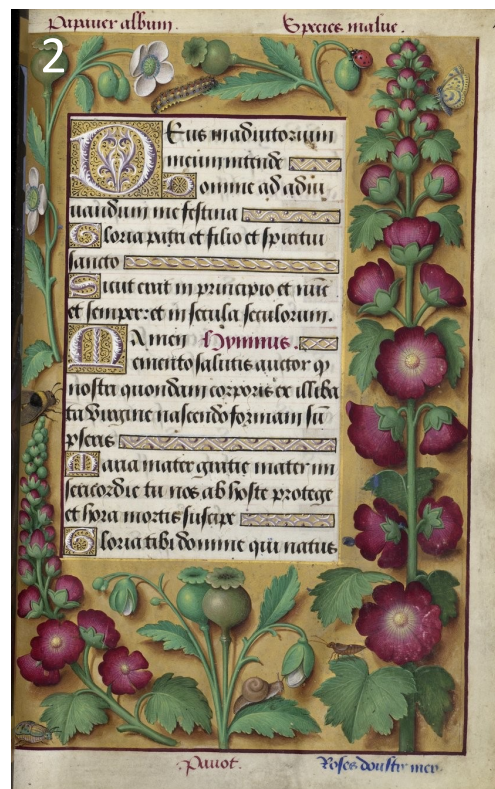 2
Papauer album. Species malue.
Deus in adiutorium
meum intende
Domine ad adiu
uandum me festina
Gloria patri et filio et spiritui
sancto
Sicut erat in principio et nūc
et semper: et in secula seculorum.
Amen Hymnus.
Memento salutis auctor q
nostri quondam corporis ex illiba
ta virgine nascendo formam sū
pseris
Maria mater gratie mater mi
sericordie tu nos ab hoste protege
et hora mortis suscipe
Gloria tibi domine qui natus
Pauot. Roses doultre mer.